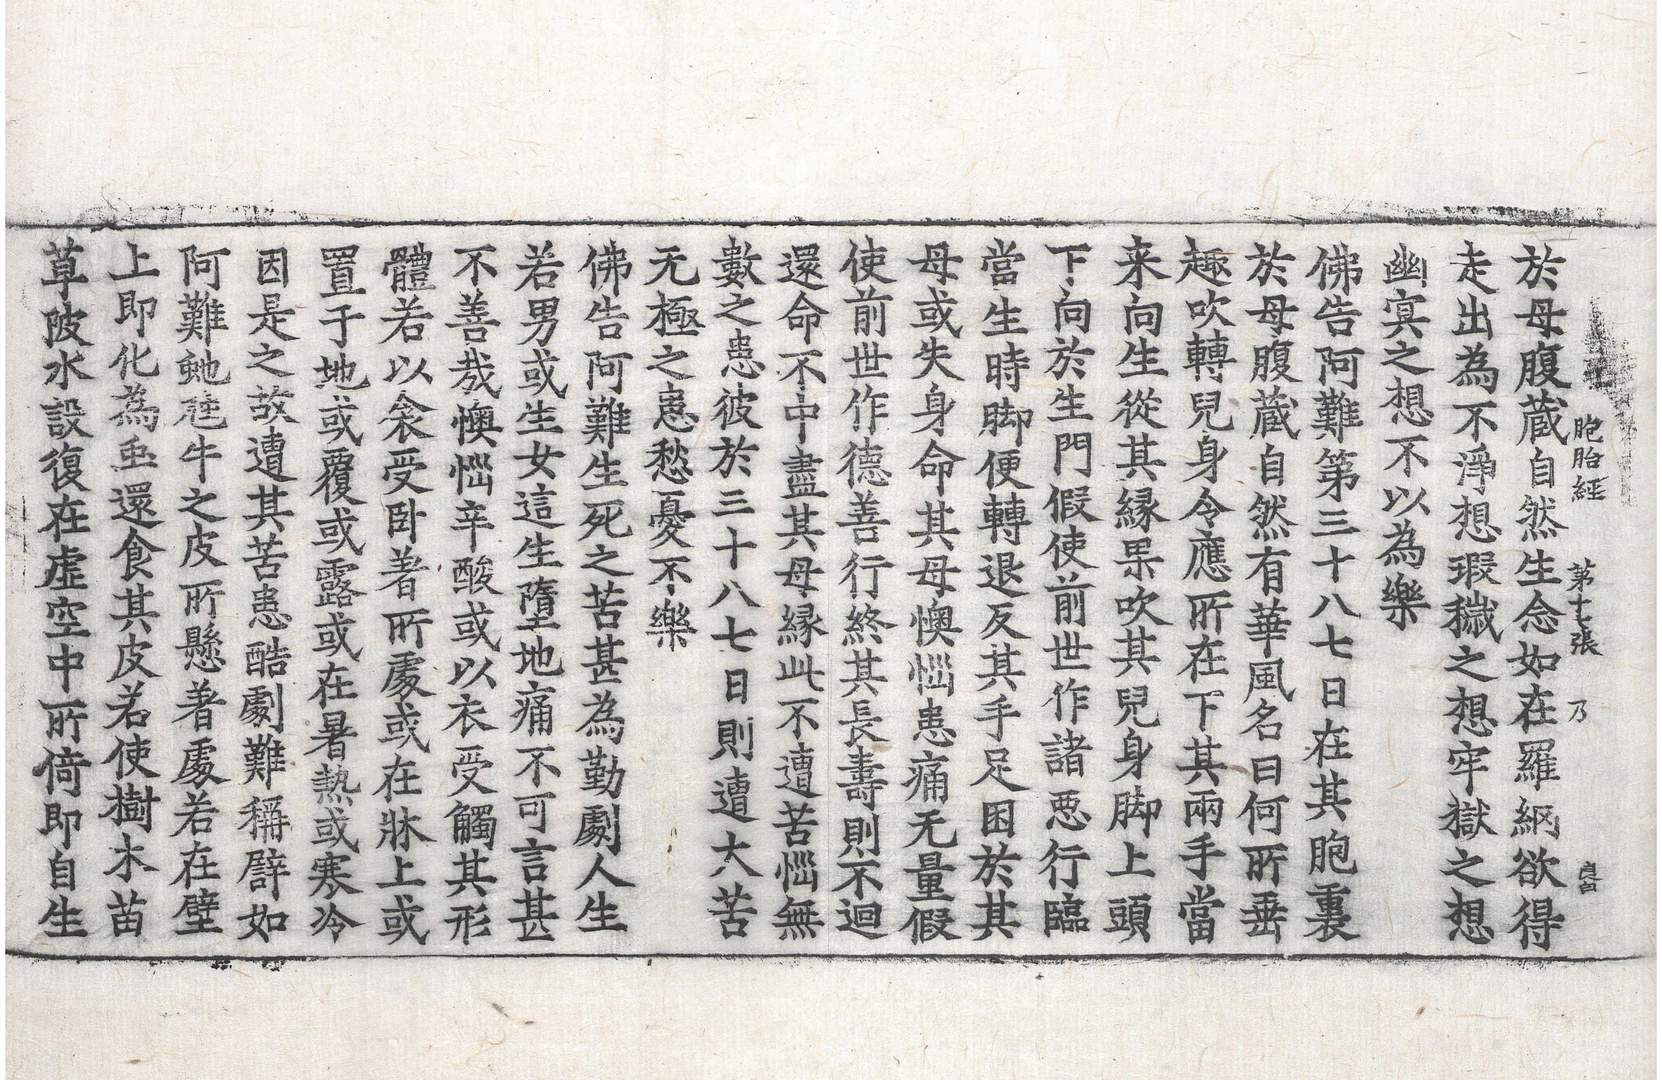 胞胎經　第十七張　乃　良白
於母腹蔵自然生念如在羅網欲得
走出為不淨想瑕穢之想牢獄之想
幽冥之想不以為樂
佛告阿難第三十八七日在其胞裏
於母腹蔵自然有華風名曰何所垂
趣吹轉兒身令應所在下其兩手當
来向生從其縁果吹其兒身脚上頭
下向於生門假使前世作諸惡行臨
當生時脚便轉退反其手足困於其
母或失身命其母懊惱患痛无量假
使前世作德善行終其長壽則不迴
還命不中盡其母縁此不遭苦惱無
數之患彼於三十八七日則遭大苦
无極之患愁憂不樂
佛告阿難生死之苦甚為勤劇人生
若男或生女這生墮地痛不可言甚
不善哉懊惱辛酸或以衣受觸其形
體若以衾受卧著所處或在牀上或
置于地或覆或露或在暑熱或寒冷
因是之故遭其苦患酷劇難稱譬如
阿難虵虺牛之皮所懸著處若在壁
上即化為䖝還食其皮若使樹木苗
草陂水設復在虛空中所倚即自生